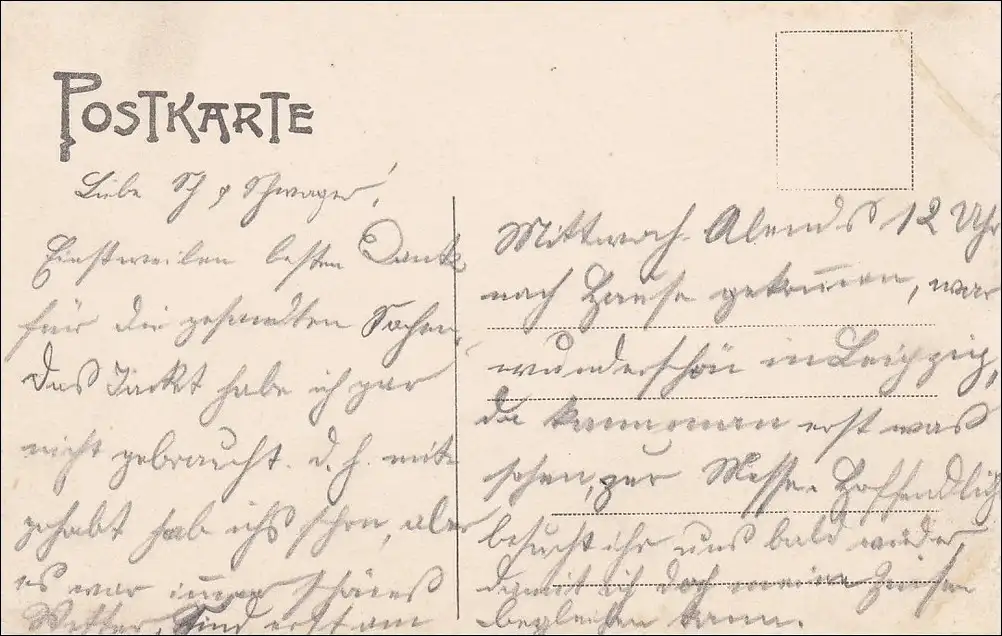 POSTKARTE
Liebe Sch & Schwager!
Einstweilen besten Dank
für die gesandten Sachen,
das Jäckt habe ich gar
nicht gebraucht. d. h. mit
gehabt hab ichs schon, aber
es war immer schönes
Wetter, sind erst am
Mittwoch Abends 12 Uhr
nach Hause gekommen, war
wunderschön in Leipzig,
da kann man erst was
sehen, zur Messe. Hoffendlich
besucht ihr uns bald wieder,
damit ich doch meine
begleichen kann.